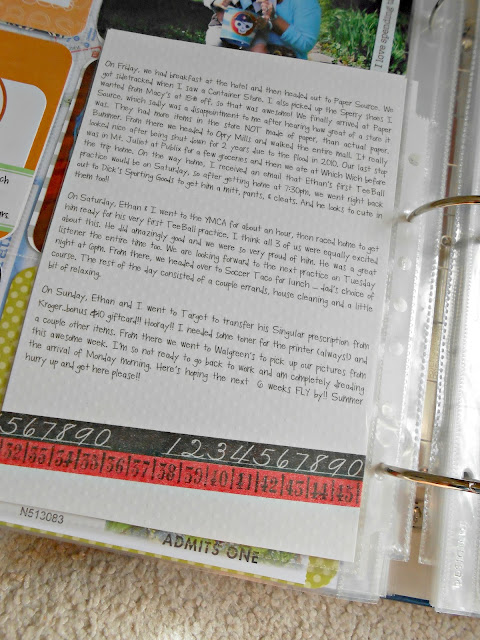 I love spending
On Friday, we had breakfast at the hotel and then headed out to Paper Source. We
got sidetracked when I saw a Container Store. I also picked up the Sperry shoes I
wanted from Macy's at 15% off, so that was awesome! We finally arrived at Paper
Source, which sadly was a disappointment to me after hearing how great of a store it
was. They had more items in the store NOT made of paper, than actual paper.
Bummer. From there we headed to Opry Mills and walked the entire mall. It really
looked nice after being shut down for 2 years due to the flood in 2010. Our last stop
was in Mt. Juliet at Publix for a few groceries and then we ate at Which Wich before
the trip home. On the way home, I received an email that Ethan's first TeeBall
practice would be on Saturday, so after getting home at 7:30pm, we went right back
out to Dick's Sporting Goods to get him a mitt, pants, & cleats. And he looks to cute in
them too!!
On Saturday, Ethan & I went to the YMCA for about an hour, then raced home to get
him ready for his very first TeeBall practice. I think all 3 of us were equally excited
about this. He did amazingly good and we were so very proud of him. He was a great
listener the entire time too. We are looking forward to the next practice on Tuesday
night at 6pm. From there, we headed over to Soccer Taco for lunch ... dad's choice of
course. The rest of the day consisted of a couple errands, house cleaning and a little
bit of relaxing.
On Sunday, Ethan and I went to Target to transfer his Singular prescription from
Kroger...bonus $10 giftcard!! Hooray!! I needed some toner for the printer (always!) and
a couple other items. From there we went to Walgreen's to pick up our pictures from
this awesome week. I'm so not ready to go back to work and am completely dreading
the arrival of Monday morning. Here's hoping the next 6 weeks FLY by!! Summer
hurry up and get here please!!
567890 1234567890
32 33 34 35 36 37 38 39 40 41 42 43 44 45
N513083
ADMITS ONE